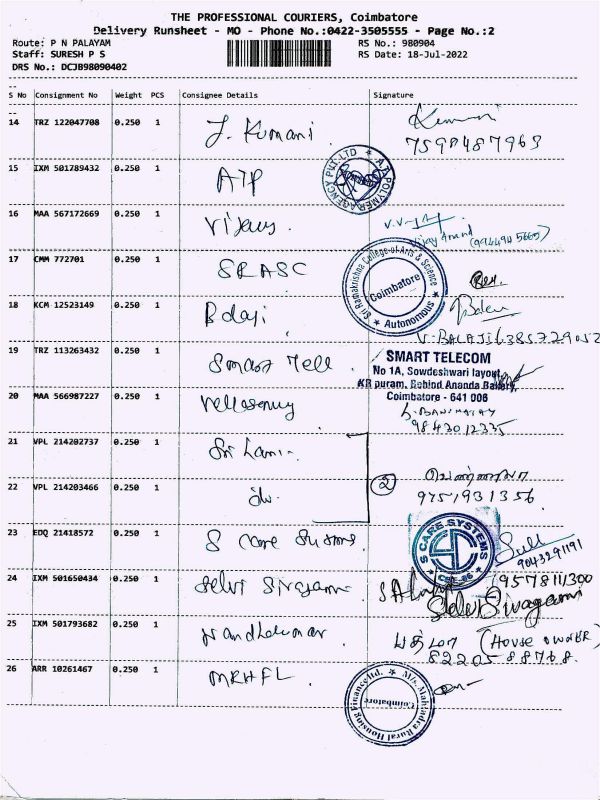 THE PROFESSIONAL COURIERS, Coimbatore
Delivery Runsheet - MO - Phone No.:0422-3505555 - Page No.:2
Route: P N PALAYAM
RS No.: 980904
Staff: SURESH P S
RS Date: 18-Jul-2022
DRS No.: DCJB98090402
S No Consignment No Weight PCS Consignee Details Signature
14 TRZ 122047708 0.250 1 J. Kumari
15 IXM 501789432 0.250 1 ATP
A.T. POLYMER AGENCY PVT. LTD
16 MAA 567172669 0.250 1
Vijay Anand
17 CMM 772701 0.250 1 SRASC
Sri Ramakrishna College of Arts & Science
Coimbatore
Autonomous
18 KCM 12523149 0.250 1 Balaji
V. BALAJI 6385729052
19 TRZ 113263432 0.250 1 Smart Tell
SMART TELECOM
No 1A, Sowdeshwari layout,
KR puram, Behind Ananda Bakery,
Coimbatore - 641 006
20 MAA 566987227 0.250 1
9843012335
21 VPL 214202737 0.250 1
22 VPL 214203466 0.250 1 do.
2
9751931356
23 EDQ 21418572 0.250 1 S Care Systems
S CARE SYSTEMS
CBE-06
9043291191
24 IXM 501650434 0.250 1 Selvi Sivagami
9578111300
Selvi Sivagami
25 IXM 501793682 0.250 1 Nandhakumar
பத்மா (HOUSE OWNER)
8220588768
26 ARR 10261467 0.250 1 MRHFL
M/s. Mahindra Rural Housing Finance Ltd.
Coimbatore